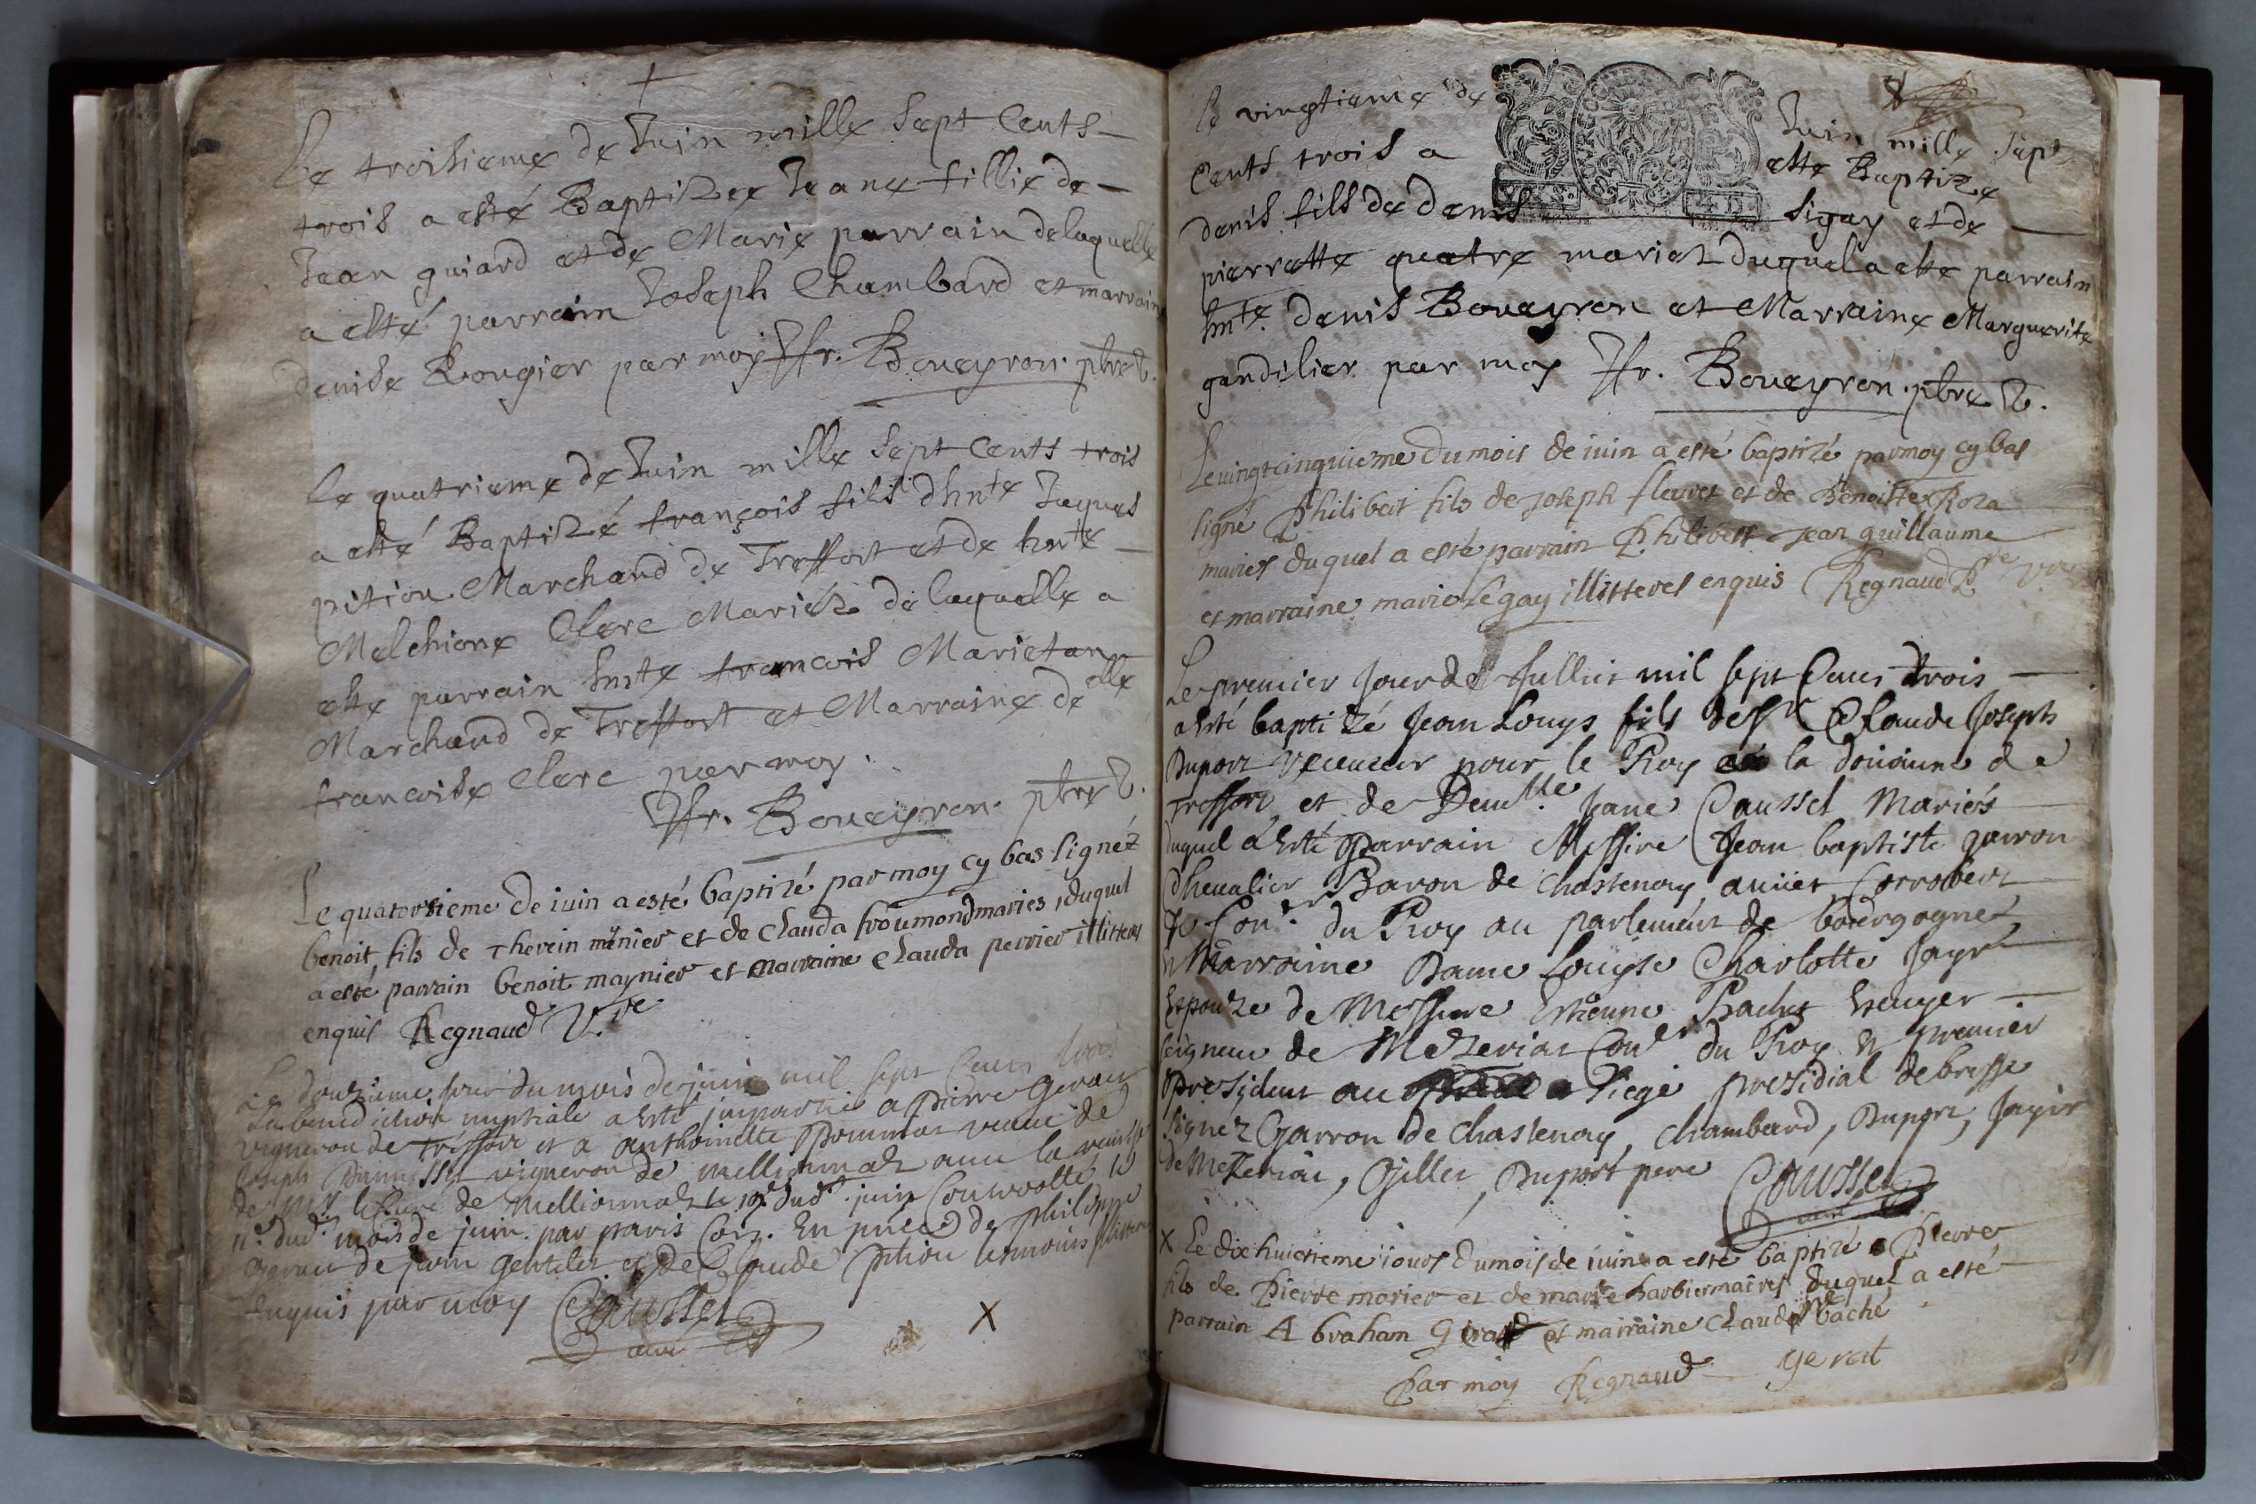 Le troisieme de Juin mille sept cents
trois a esté Baptizée Jeane fillie de
Jean guiard et de Marie parrain delaquelle
a esté parrain Joseph Chambard et marraine
denise Rougier par moy Fr. Boueyron. pbre
Le quatrieme de Juin mille sept cents trois
a esté Baptizé françois fils dhnte Jaques
pition Marchand de Treffort et de hnte
Melchione Clerc Mariéz de laquelle a
este parrain hnte francois Marietan
Marchand de Treffort et Marraine delle
francoise Clerc par moy.
Fr. Boueyron. pbre
Le quatorsieme de iuin a esté baptizé par moy cy bas signéz
benoit fils de Therein minier et de Clauda froumond maries, duquel
a esté parrain benoit maynier et marraine Clauda perrier illitteres
enquis Regnaud Vre
Le douzieme jour du mois de juin mil sept Cens trois
La benediction nuptiale a esté impartie a pierre Geraud
vigneron de Treffort et a anthoinette pommat veuue de
Joseph vigneron de meillionnaz auec la
de Mr le Curé de Meillionnaz le dud. juin Controollé le
dud. mois de juin par paris Con. En pnce de philippe
de jean gentelet et de Claude pition temoins
Enquis par moy Caussel
curé
X
Le vingtieme de Juin mille sept
cents trois a esté Baptize
denis fils de denis sigay et de
pierrette quatre mariez duquel a este parrain
hnte. denis Boueyron et Marraine Marguerite
gandilier par moy Fr. Boueyron. pbre
Le vingtcinquieme du mois de iuin a esté baptizé par moy cy bas
signé Philibert fils de Joseph fleuret et de Benoitte Roza
maries duquel a esté parrain Philibert Jean guillaume
et marraine marie legay illitteres enquis Regnaud Pre
Le premier Jour de Jullier mil sept Cens trois
a esté baptizé Jean Louys fils de Sr Claude Joseph
Duport receueur pour le Roy la douanne de
Treffort et de Demlle Jane Caussel Mariés
duquel a esté parrain Messire Jean baptiste garron
Cheualier Baron de Chastenay Corrobert
Conr. du Roy au parlement de bourgogne
Marraine Dame Louyse Charlotte Jayr
Espouze de Messire Estienne Bachet Escuyer
seigneur de Mezeriat Coner du Roy & premier
president au siege presidial de bresse
signez Garron de Chastenay, Chambard, Duport, Jayr
de Mezeriac, Gillet, Duport pere Caussel
curé
X Le dix huictieme iours du mois de iuin a esté baptizé Pierre
fils de Pierre morier et de marie barbier maries duquel a esté
parrain Abraham Gerat et marraine Claude baché
Par moy Regnaud gerat